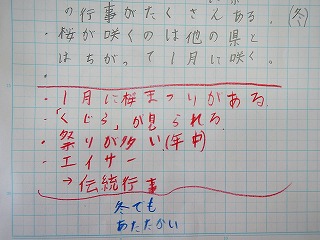 の行事がたくさんある。(冬)
・桜が咲くのは他の県と
はちがって1月に咲く。
・
・1月に桜まつりがある。
・「くじら」が見られる。
・祭りが多い。(年中)
・エイサー
→伝統行事
冬でも
あたたかい